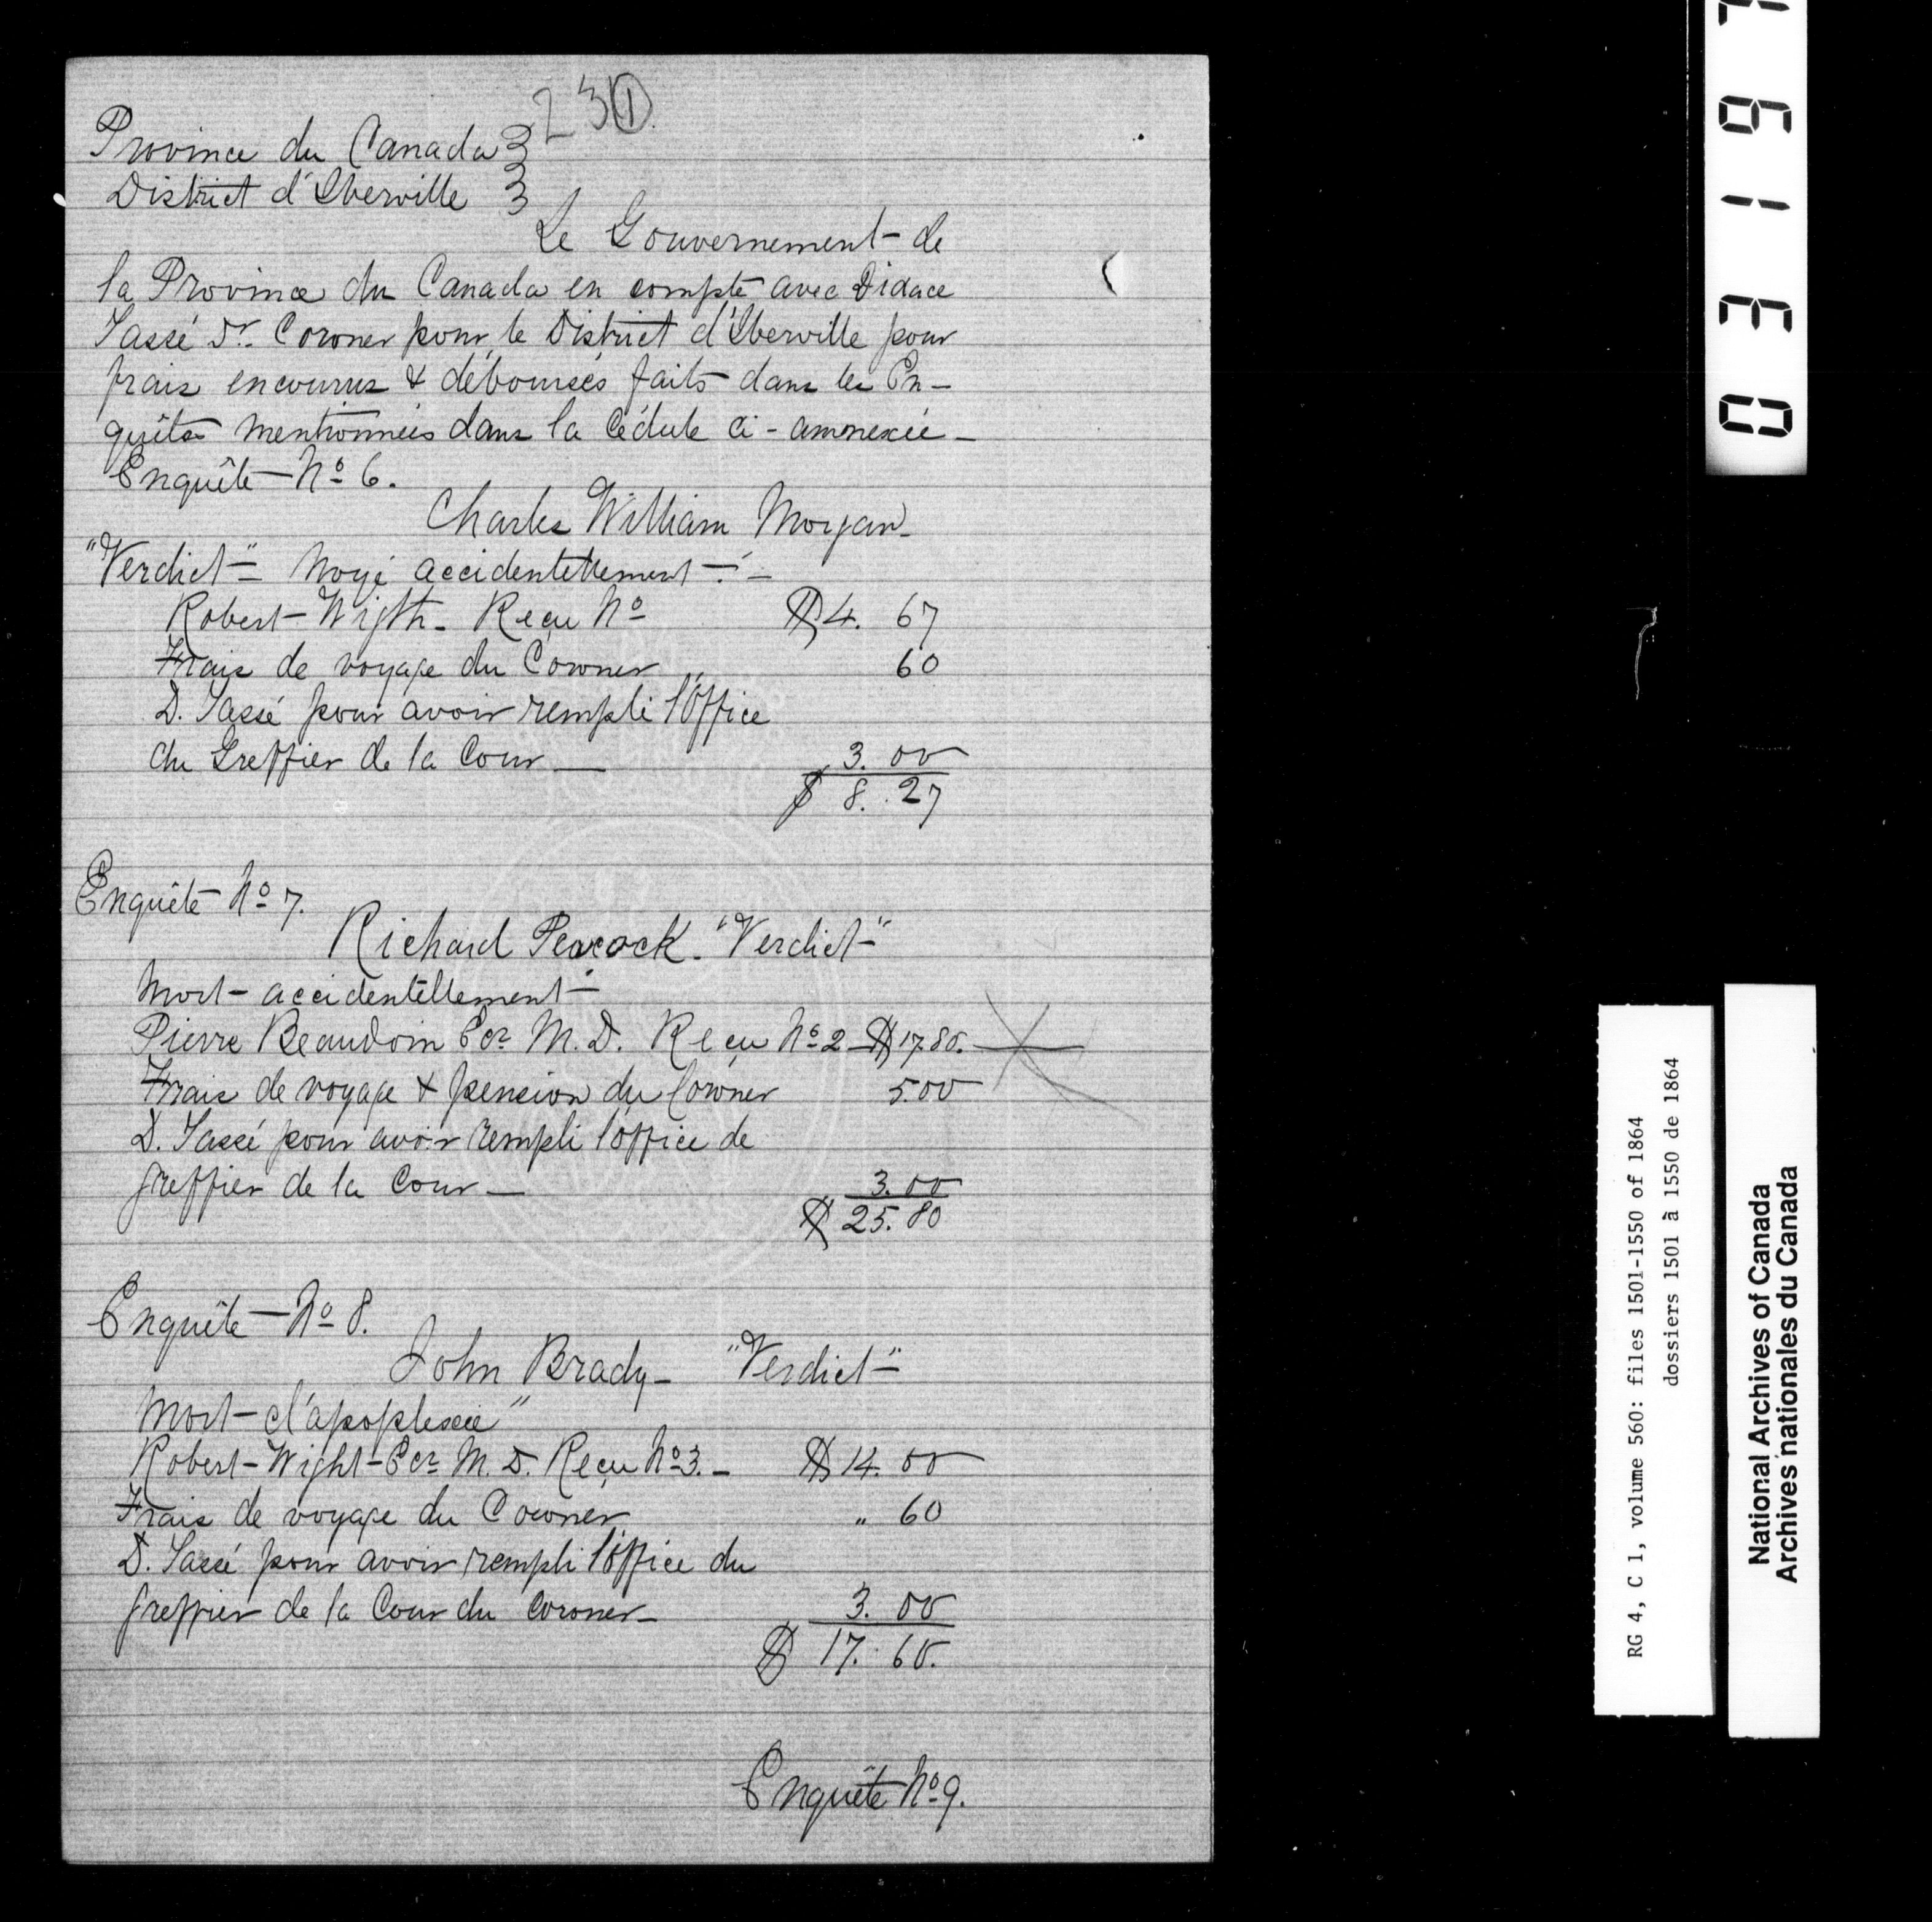 23 1
Province du Canada
District d'Iberville
Le Gouvernement de
la Province du Canada en compte avec Didace
Tassé Dr. Coroner pour le District d'Iberville pour
frais encourus & déboursés faits dans les En-
quêtes mentionnées dans la Cédule ci-annexée -
Enquête No 6.
Charles William Morgan -
"Verdict" Noyé accidentellement -
Robert Wigth. Reçu No $4. 67
Frais de voyage du Coroner 60
D. Tassé pour avoir rempli l'Office
du Greffier de la Cour 3. 00
$ 8. 27
Enquête No 7.
Richard Peacock. "Verdict"
Mort accidentellement
Pierre Beaudoin Ecr M.D. Reçu No 2 $17.80.
Frais de voyage & pension du Coroner 5.00
D. Tassé pour avoir rempli l'office de
greffier de la Cour 3.00
$ 25.80
Enquête No 8.
John Brady - "Verdict"
Mort d'apoplexie"
Robert Wight Ecr M. D. Reçu No 3. - $ 14. 00
Frais de voyage du Coroner " 60
D. Tassé pour avoir rempli l'Office du
greffier de la Cour du Coroner - 3. 00
$ 17. 60.
Enquête No 9.
0319
RG 4, C 1, volume 560: files 1501-1550 of 1864
dossiers 1501 à 1550 de 1864
National Archives of Canada
Archives nationales du Canada